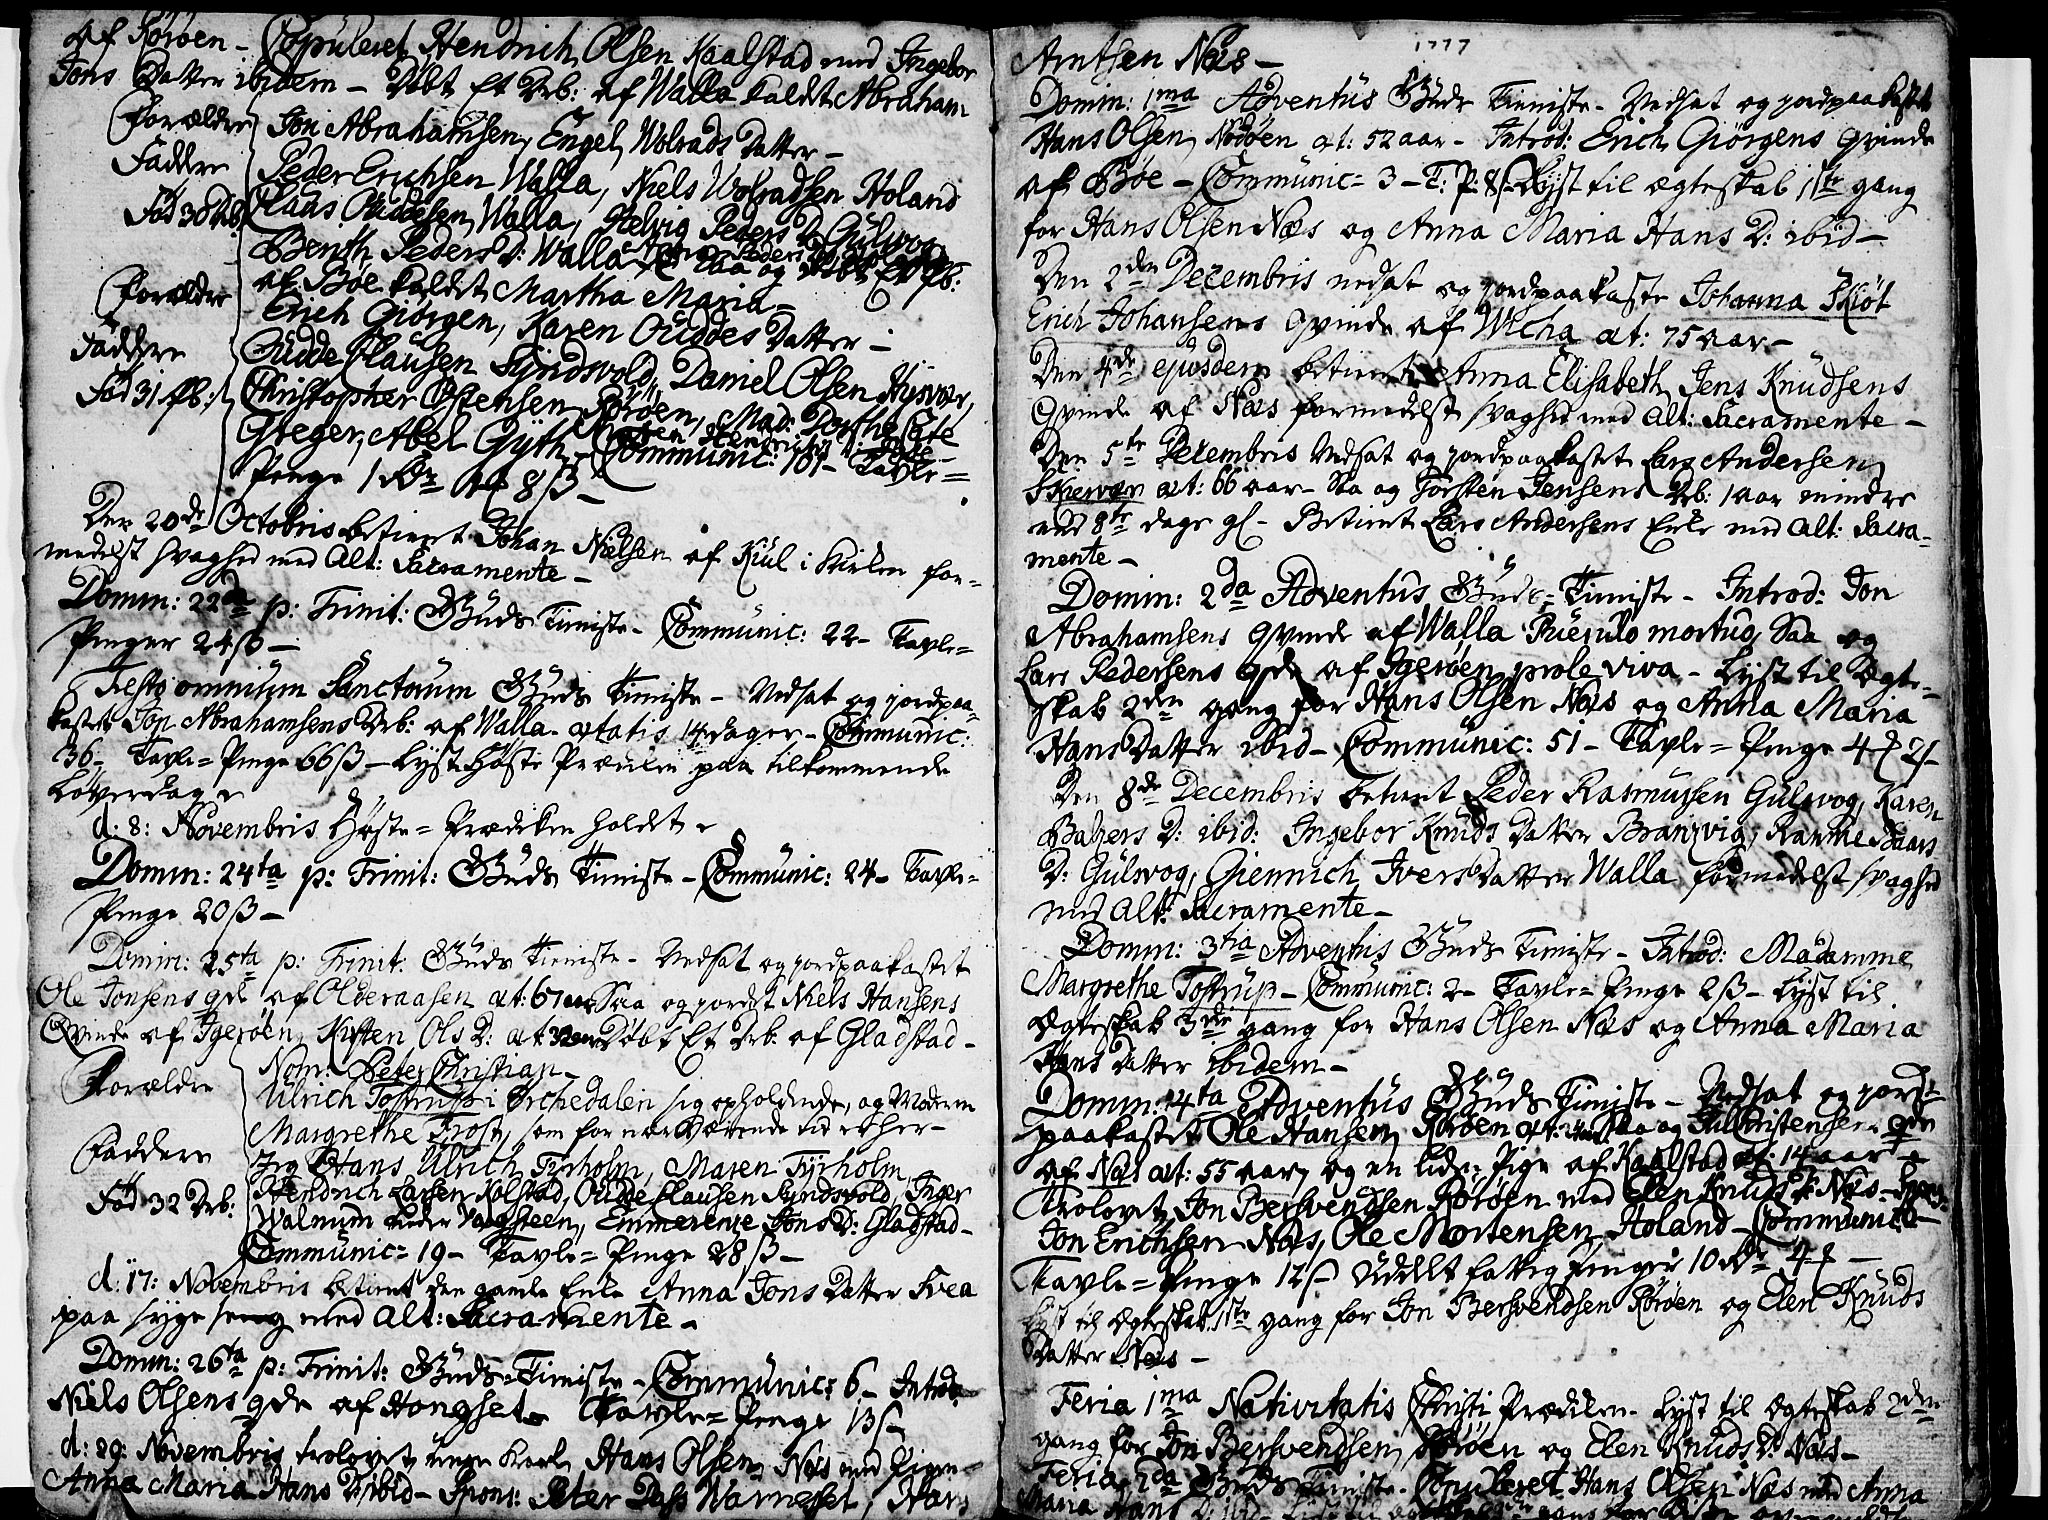 af Rørøen - Copuleret Hendrich Olsen Kaalstad med Ingebor
Jons Datter ibidem - Døbt Et Drb: af Walla kaldt Abraham
Forældre Jon Abrahamsen, Engel Wolrads Datter -
Faddre Peder Erichsen Walla, Niels Wolradsen Holand
Fød 30 Drb. Claus Walla, Helvig Peders D: Gulsvog
Benth Peders D: Walla - Saa og døbt Et Pb:
af Bøe kaldet Martha Maria -
Forældre Erich Giørgen, Karen Ouddes Datter -
Faddre Oudde Clausen Syndsvold, Daniel Olsen Hysvær,
Fød 31 Pb: Christopher Ostensen Rørøen, Mad: Dorthe Cate
Greger, Abel Gyth - Communic: 101 - Tavle=
Penge 1 Rdr 8 ß -
Den 20de Octobris betient Johan Nielsen af Kiul i Kirken for-
medelst svaghed med Alt: Sacramente -
Domin: 22da p: Trinit: Guds Tieniste - Communic: 22 - Tavle=
Penger 24 ß -
Festo omnium Sanctorum Guds Tieniste - Nedsat og jordpaa-
kastet Jon Abrahamsens Drb: af Walla ætatis 14 dager - Communic:
36 - Tavle=Penge 66 ß - Lyst Høste Prædiken paa tilkommende
Løverdag -
d: 8: Novembris Høste=Prædiken holdt -
Domin: 24ta p: Trinit: Guds Tieniste - Communic: 24 - Tavle-
Penge 20 ß -
Domin: 25ta p: Trinit: Guds Tieniste - Nedsat og jordpaakastet
Ole Jonsens qde af Olderaasen æt: 67 aar Saa og jordet Niels Hansens
Qvinde af Igerøen, Kirsten Ols D: æt: 32 aar Døbt Et Drb: af Gladstad -
Nom: Peter Christian -
Forældre Ulrich Tostrup i Orchedalen sig opholdende, og Moderen
Margrethe Frost, som for nærværende tid er her -
Faddere Jeg Hans Ulrich Tyrholm, Maren Tyrholm
Hendrich Larsen Kolstad, Oudde Clausen Syndsvold, Inger
Fød 32 Drb: Walnum Vaagsteen, Emmerenze Jons D: Gladstad -
Communic= 19 - Tavle=Penge 28 ß -
d: 17: Novembris betient den gamle Enke Anna Jons Datter Svea
paa syge seng med Alt: Sacramente -
Domin: 26ta p: Trinit: Guds=Tieniste - Communic: 6 - Introd:
Niels Olsens qde af Hongset - Tavle=Penge 13 ß -
d: 29: Novembris trolovet unge Karl Hans Olsen Næs med Pigen
Anna Maria Hans D: ibid - Spons: Peter Dass Warnesset, Hans
1777
Arntsen Næs -
Domin: 1ma Adventus Guds Tieniste - Nedsat og jordpaakastet
Hans Olsen Nordøen æt: 52 aar - Introd: Erich Giørgens Qvinde
af Bøe - Communic= 3 - T: P: 8 ß - Lyst til ægteskab 1ste gang
for Hans Olsen Næs og Anna Maria Hans D: ibid -
Den 2den Decembris nedsat og jordpaakaste Johanna Skiøt
Erich Johansens Qvinde af Wicha æt: 75 aar -
Den 4de ejusdem betient Anna Elisabeth Jens Knudsens
Qvinde af Næs formedelst svaghed med Alt: Sacramente -
Den 5te Decembris Nedsat og jordpaakastet Lars Andersen
Skierver æt: 66 aar - Saa og Torsten Jensens Drb: 1 aar mindre
end 8te dage gl - Betient Lars Andersens Enke med Alt: Sacra-
mente -
Domin: 2da Adventus Guds=Tieniste - Introd: Jon
Abrahamsens Qvinde af Walla Puerulo mortuo, Saa og
Lars Pedersens qde af Igerøen prole viva - Lyst til Ægte-
skab 2den gang for Hans Olsen Næs og Anna Maria
Hans Datter ibid - Communic: 51 - Tavle=Penge 4 2 ß -
Den 8de Decembris betient Peder Rasmussen Gulsvog, Karen
Balzers D: ibid: Ingebor Knuds Datter Branzvig, Ranne Baars
D: Gulsvog, Giennich Ivers Datter Walla formedelst svaghed
med Alt: Sacramente -
Domin: 3tia Adventus Guds Tieniste - Introd: Madamme
Margrethe Tostrup - Communic: 2 - Tavle=Penge 2 ß - Lyst til
Ægteskab 3die gang for Hans Olsen Næs og Anna Maria
Hans Datter ibidem -
Domin: 4ta Adventus Guds Tieniste - Nedsat og jord-
paakastet Ole Hansen Rørøen æt: Saa og Christensens qde
af Næs æt: 55 aar, og en liden Pige af Kaalstad æt: 14 aar -
Trolovet Jon Bersvendsen Rørøen med Elen Knuds D: Næs - Spons:
Jon Erichsen Næs, Ole Mortensen Holand - Communic:
Tavle=Penge 12 ß - Uddelt fattig Penger 10 Rdr 4 -
Lyst til Ægteskab 1ste gang for Jon Bersvendsen Rørøen og Elen Knuds
Datter Næs -
Feria 1ma Nativitatis Christi Prædiken - Lyst til Ægteskab 2den
gang for Jon Bersvendsen Rørøen og Elen Knuds D: Næs -
Feria 2da Guds Tieniste - Copuleret Hans Olsen Næs med Anna
Maria Hans D: ibid -